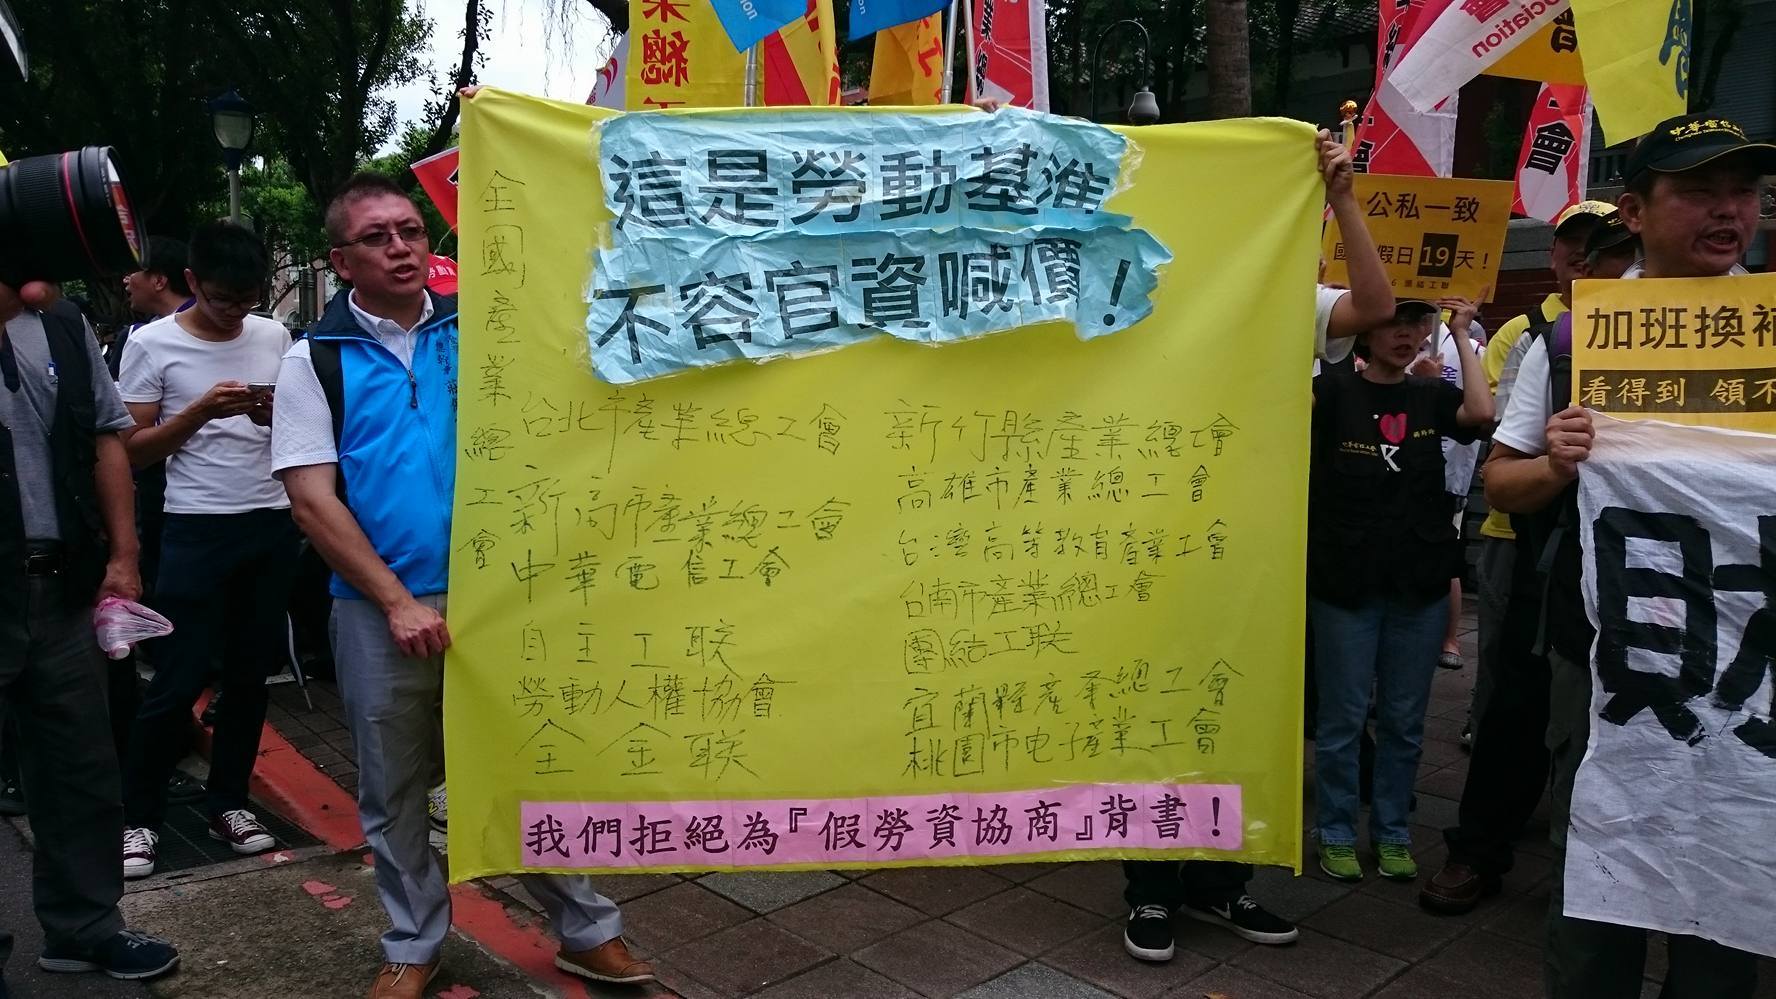 業總
會
ciation
會
中華電信
公私一致
國假日19天！
團結工聯
加班換補
看得到 領不
財
這是勞動基準
不容官資喊價！
全國產業總工會
台北市產業總工會
新高市產業總工會
中華電信工會
自主工联
勞動人權協會
全金联
新竹縣產業總工會
高雄市產業總工會
台灣高等教育產業工會
台南市產業總工會
團結工联
宜蘭縣產業總工會
桃園市电子產業工會
我們拒絕為『假勞資協商』背書！
K